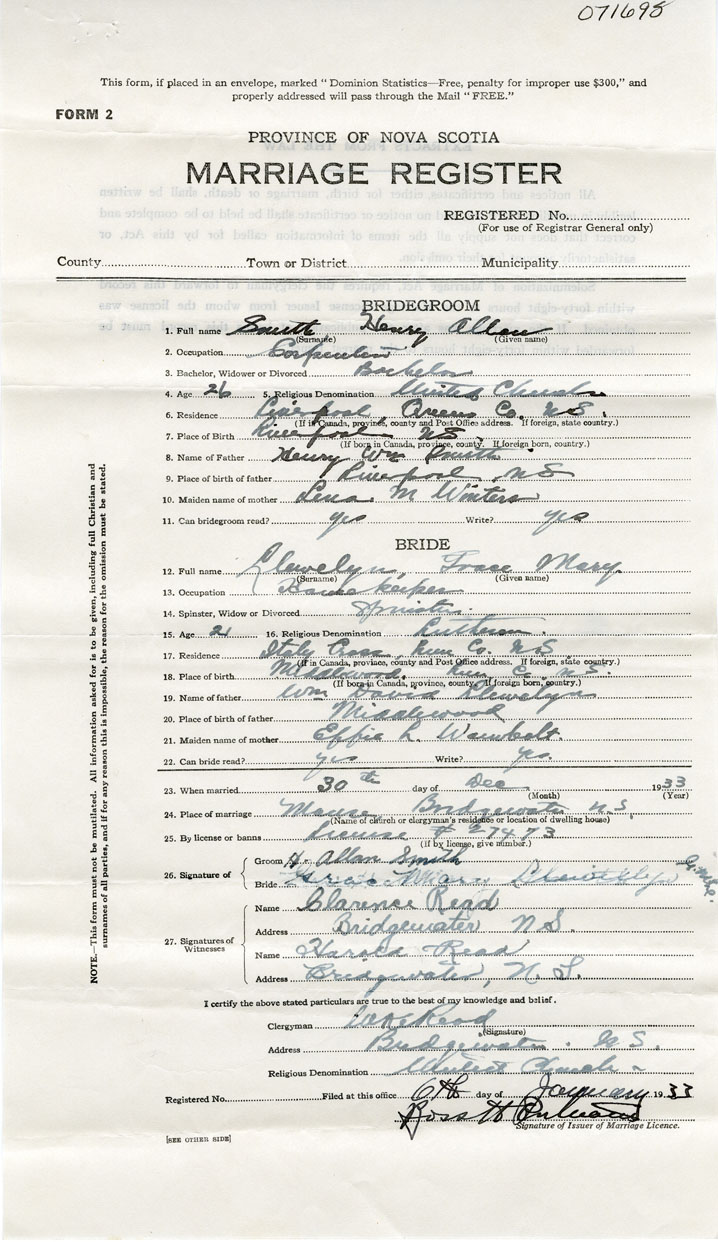 071698
This form, if placed in an envelope, marked " Dominion Statistics—Free, penalty for improper use $300," and
properly addressed will pass through the Mail " FREE."
FORM 2
PROVINCE OF NOVA SCOTIA
MARRIAGE REGISTER
REGISTERED No.
(For use of Registrar General only)
County Town or District Municipality
BRIDEGROOM
1. Full name Smith Henry Allan
(Surname) (Given name)
2. Occupation Carpenter
3. Bachelor, Widower or Divorced Bachelor
4. Age 26 5. Religious Denomination United Church
6. Residence Liverpool, Queens Co. N.S.
(If in Canada, province, county and Post Office address. If foreign, state country.)
7. Place of Birth Liverpool N.S.
(If born in Canada, province, county. If foreign born, country.)
8. Name of Father Henry Wm Smith
9. Place of birth of father Liverpool, N.S
10. Maiden name of mother Lena M Winters
11. Can bridegroom read? yes Write? yes
BRIDE
12. Full name Llewelyn, Grace Mary
(Surname) (Given name)
13. Occupation Housekeeper
14. Spinster, Widow or Divorced Spinster
15. Age 21 16. Religious Denomination Lutheran
17. Residence Italy Cross, Lun Co. N.S
(If in Canada, province, county and Post Office address. If foreign, state country.)
18. Place of birth Middlewood, Lun C. N.S.
(If born in Canada, province, county. If foreign born, country.)
19. Name of father Wm David Llewelyn
20. Place of birth of father Middlewood
21. Maiden name of mother Effie L. Wambolt
22. Can bride read? yes Write? yes.
23. When married 30th day of Dec 1933
(Month) (Year)
24. Place of marriage Manse, Bridgewater N.S.
(Name of church or clergyman's residence or location of dwelling house)
25. By license or banns license #
(If by license, give number.)
26. Signature of
Groom H. Allan Smith
Bride Grace Mary
27. Signatures of Witnesses
Name Clarence Read
Address Bridgewater N.S.
Name Harold Read
Address Bridgewater, N.S.
I certify the above stated particulars are true to the best of my knowledge and belief.
Clergyman Read
(Signature)
Address Bridgewater. N.S.
Religious Denomination United Church
Registered No. Filed at this office 6th day of January 1933
Ross H
Signature of Issuer of Marriage Licence.
[SEE OTHER SIDE]
NOTE.—This form must not be mutilated. All information asked for is to be given, including full Christian and
surnames of all parties, and if for any reason this is impossible, the reason for the omission must be stated.